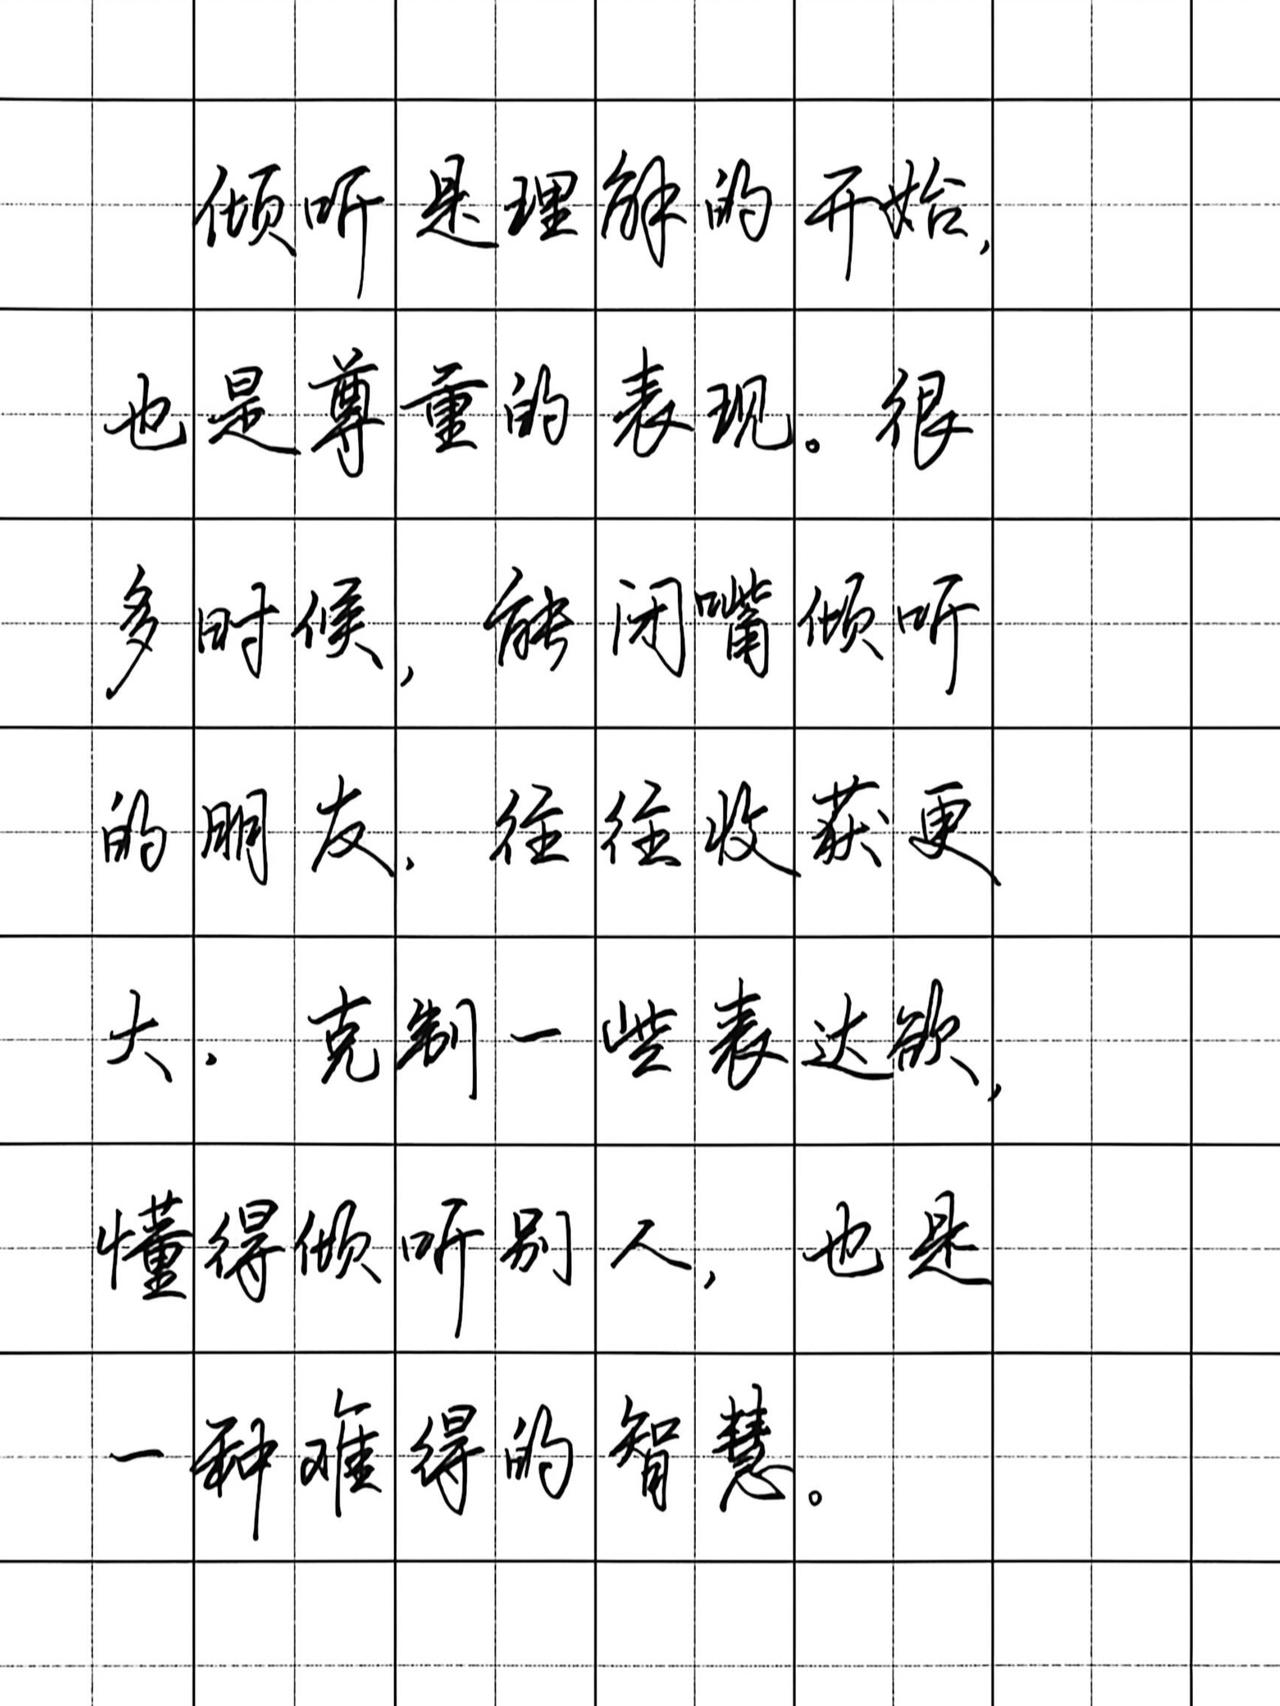 倾听是理解的开始,
也是尊重的表现。很
多时候,能闭嘴倾听
的朋友,往往收获更
大.克制一些表达欲,
懂得倾听别人,也是
一种难得的智慧。